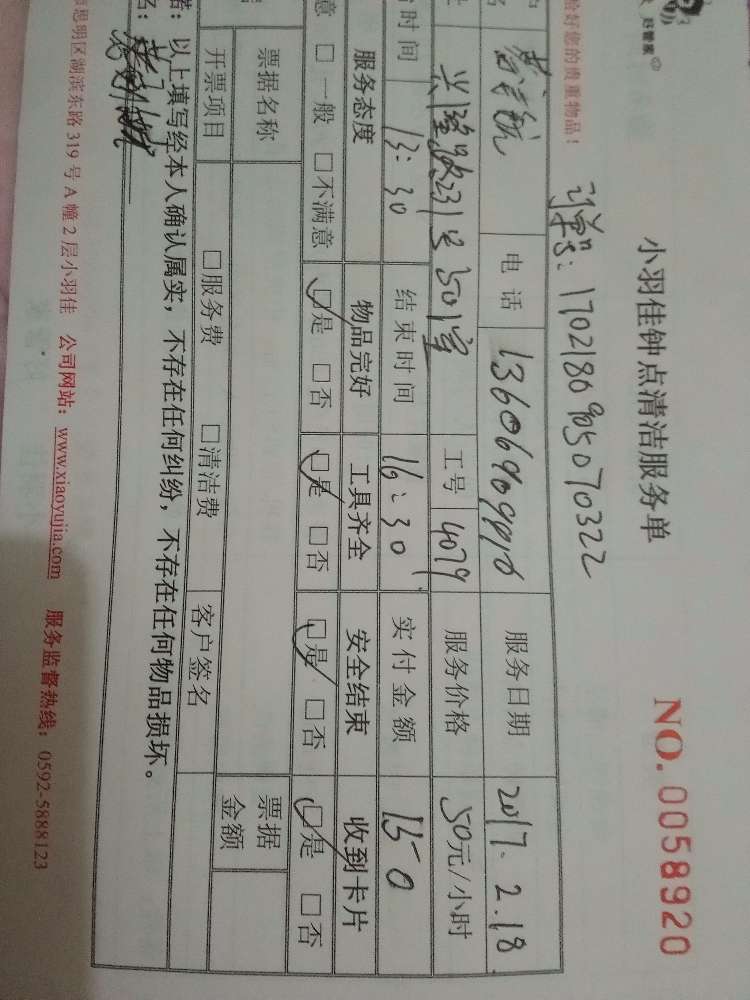 好管家
小羽佳钟点清洁服务单
NO. 0058920
恰好您的贵重物品！
订单号：170218090507032​2
电话 服务日期 2017.2.18
兴隆路231号501室 工号 4079 服务价格 50元/小时
时间 13:30 结束时间 16:30 实付金额 150
服务态度 物品完好 工具齐全 安全结束 收到卡片
意 □一般 □不满意 □是 □否 □是 □否 □是 □否 □是 □否
票据名称 票据金额
开票项目 □服务费 □清洁费 客户签名
诺：以上填写经本人确认属实，不存在任何纠纷，不存在任何物品损坏。
名：
思明区湖滨东路319号A幢2层小羽佳 公司网站：www.xiaoyujia.com 服务监督热线：0592-5888123